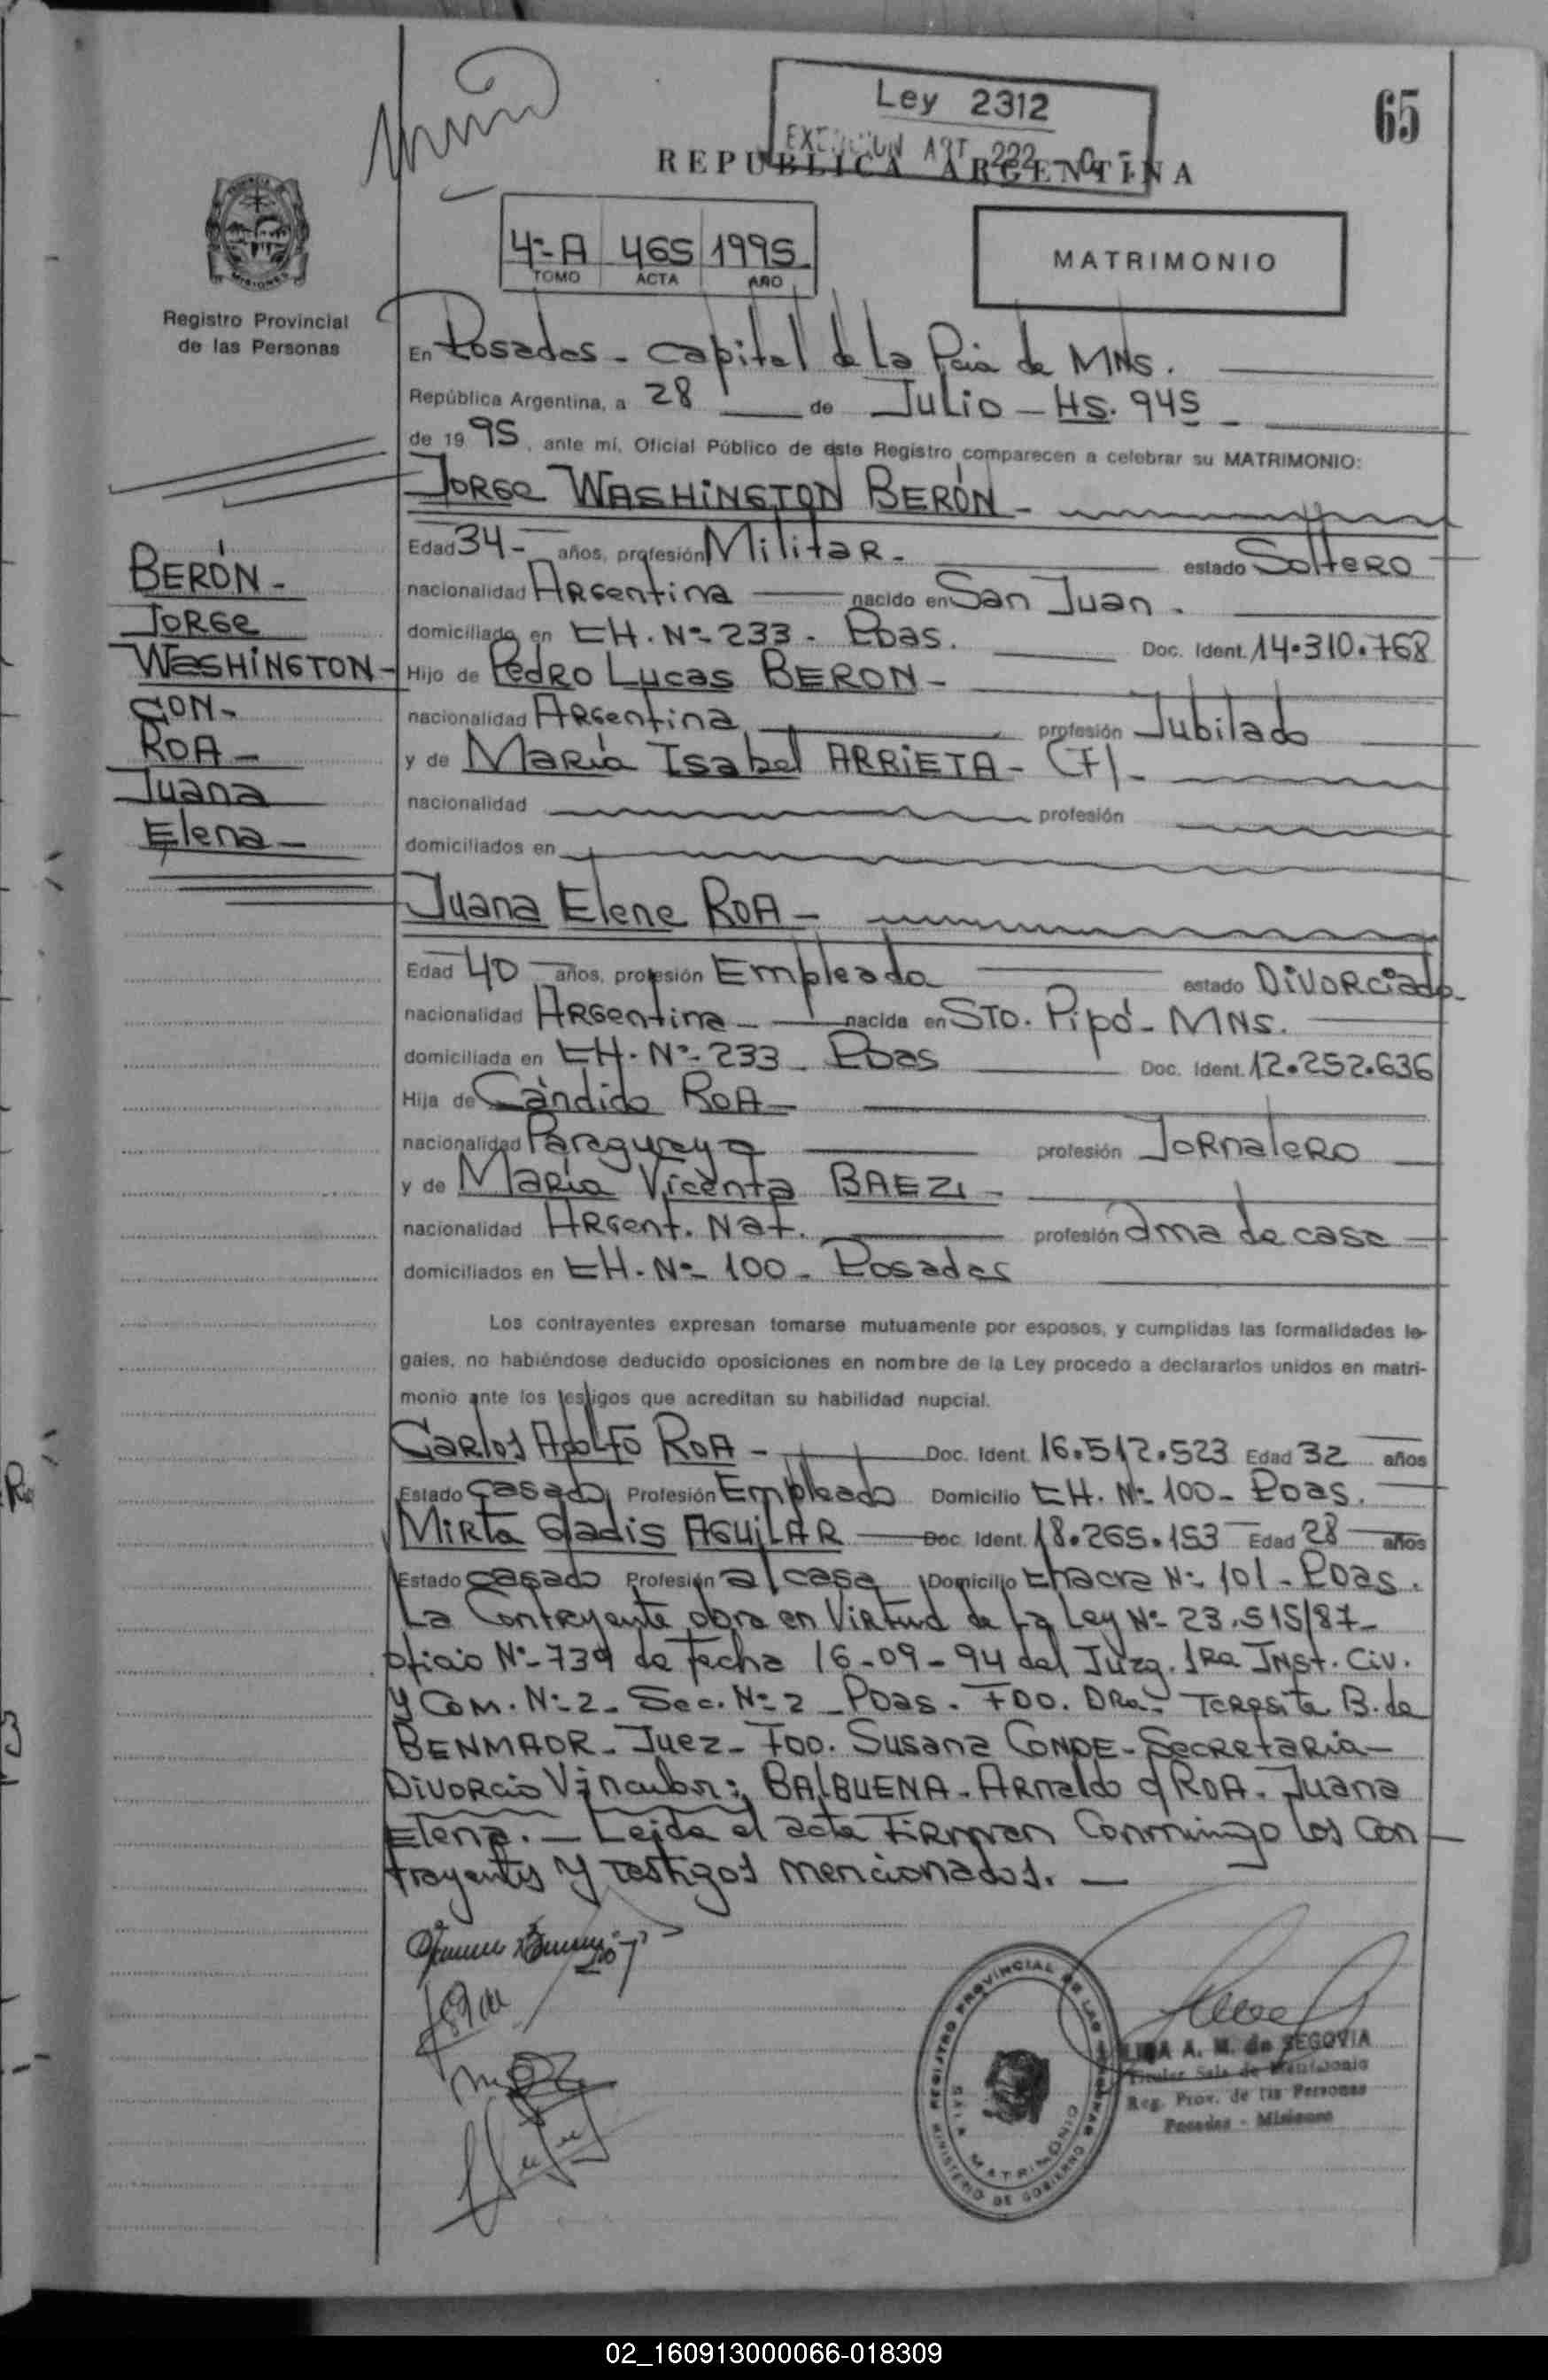 65
Ley 2312
ART 222
REPUBLICA ARGENTINA
4º-A 465 1995
TOMO ACTA AÑO
MATRIMONIO
MISIONES
Registro Provincial
de las Personas
En Posadas - Capital de la Pcia de MNS.
República Argentina, a 28 de Julio - HS. 945
de 1995, ante mí, Oficial Público de este Registro comparecen a celebrar su MATRIMONIO:
Jorge WASHINGTON BERÓN -
Edad 34 - años, profesión Militar - estado Soltero
nacionalidad Argentina nacido en San Juan.
domiciliado en CH. Nº 233 - Pdas. Doc. Ident. 14.310.768
Hijo de Pedro Lucas BERON -
nacionalidad Argentina profesión Jubilado
y de María Isabel ARRIETA - (F) -
nacionalidad profesión
domiciliados en
BERÓN -
Jorge
WASHINGTON -
CON -
ROA -
Juana
Elena -
Juana Elena ROA -
Edad 40 años, profesión Empleada estado Divorciada
nacionalidad Argentina - nacida en STO. Pipó - MNS.
domiciliada en CH. Nº 233 - Pdas Doc. Ident. 12.252.636
Hija de Cándido ROA -
nacionalidad Paraguaya profesión Jornalero
y de María Vicenta BAEZ -
nacionalidad Argent. Nat. profesión ama de casa
domiciliados en CH. Nº 100 - Posadas
Los contrayentes expresan tomarse mutuamente por esposos, y cumplidas las formalidades le-
gales, no habiéndose deducido oposiciones en nombre de la Ley procedo a declararlos unidos en matri-
monio ante los testigos que acreditan su habilidad nupcial.
Carlos Adolfo ROA - Doc. Ident. 16.512.523 Edad 32 años
Estado casado Profesión Empleado Domicilio CH. Nº 100 - Pdas.
Mirta Gladis AGUILAR Doc. Ident. 18.265.153 Edad 28 años
Estado casado Profesión a/casa Domicilio Chacra Nº 101 - Pdas.
La Contrayente obra en Virtud de La Ley Nº 23.515/87 -
oficio Nº 739 de fecha 16-09-94 del Juzg. 1Ra Inst. Civ.
y Com. Nº 2 - Sec. Nº 2 - Pdas. - FDO. DRa. Teresita B. de
BENMAOR - Juez - FDO. Susana CONDE - Secretaria -
Divorcio Vincular: BALBUENA - Arnaldo c/ ROA - Juana
Elena. - Leida el acta Firman Conmingo los Con -
trayentes y testigos mencionados. -
REGISTRO PROVINCIAL DE LAS PERSONAS
SALA MATRIMONIO
MINISTERIO DE GOBIERNO
A. M. de SEGOVIA
Titular Sala de Matrimonio
Reg. Prov. de las Personas
Posadas - Misiones
02_160913000066-018309